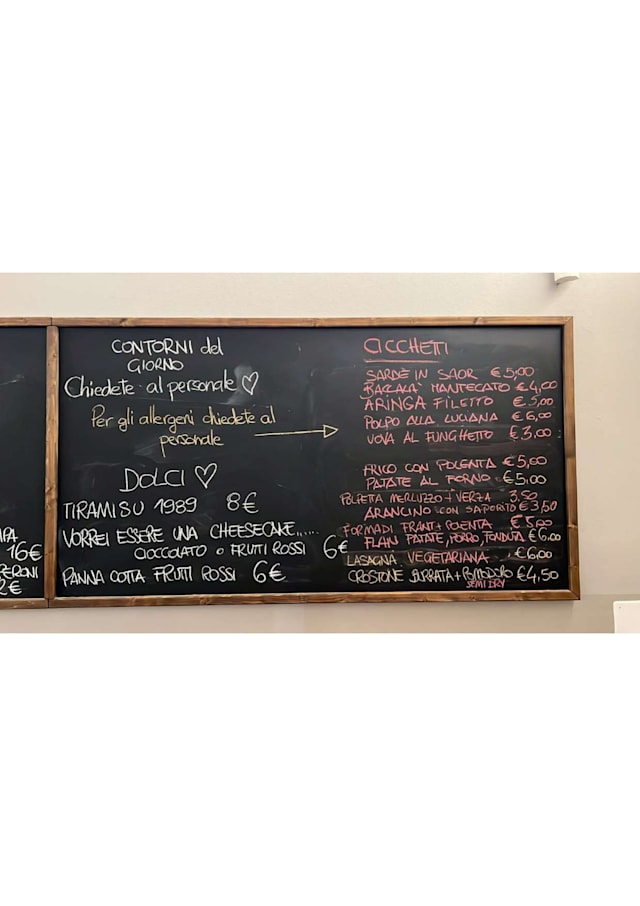 16€
2€
CONTORNI del
GIORNO
Chiedete al personale ♡
Per gli allergeni chiedete al
personale
DOLCI ♡
TIRAMISU 1989 8€
VORREI ESSERE UNA CHEESECAKE.....
CIOCCOLATO O FRUTTI ROSSI 6€
PANNA COTTA FRUTTI ROSSI 6€
CICCHETI
SARDE IN SAOR €5,00
BACCALA' MANTECATO €4,00
ARINGA FILETTO €5,00
POLPO ALLA LUCIANA €6,00
UOVA AL FUNGHETTO €3,00
FRICO CON POLENTA €5,00
PATATE AL FORNO €5,00
POLPETTA MERLUZZO+VERZA 3,50
ARANCINO CON SAPORITO €3,50
FORMADI FRANT+POLENTA €5,00
FLAN PATATE, PORRO, FONDUTA €6,00
LASAGNA VEGETARIANA €6,00
CROSTONE BURRATA+POMODORO €4,50
SEMI DRY